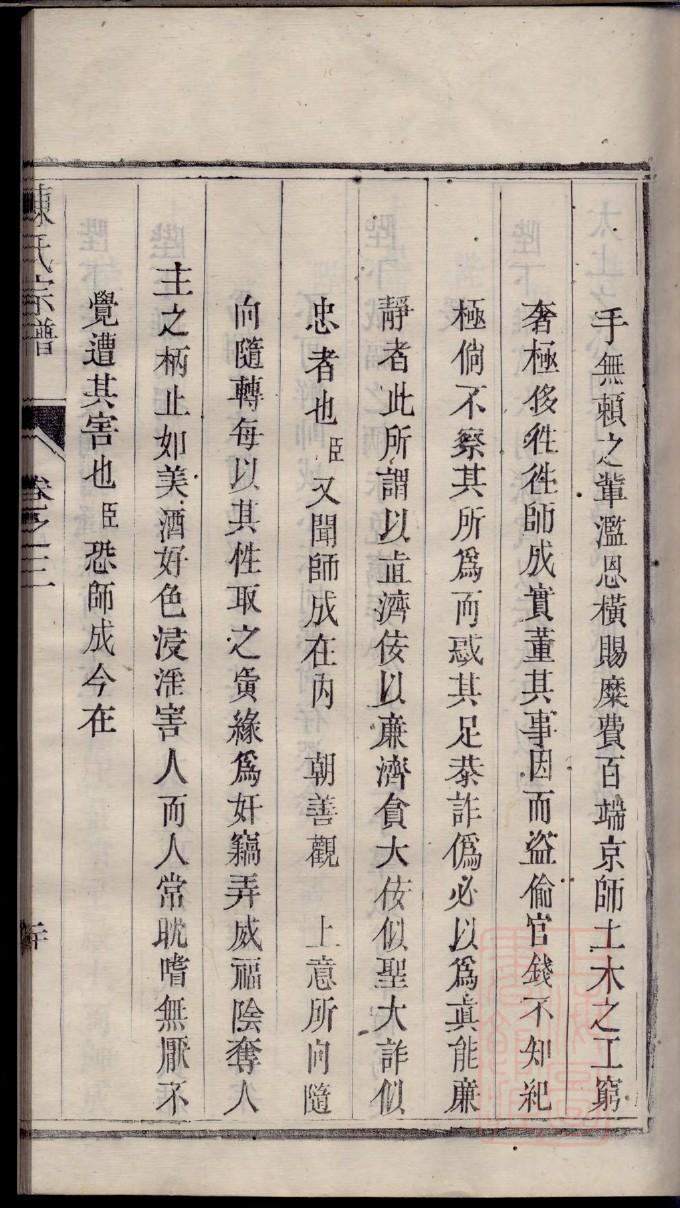 手無賴之輩濫恩橫賜糜費百端京師土木之工窮
奢極侈徃徃師成實董其事因而盜偷官錢不知紀
極倘不察其所爲而惑其足恭詐僞必以爲眞能廉
靜者此所謂以直濟佞以廉濟貪大佞似聖大詐似
忠者也臣又聞師成在內　朝善觀　上意所向隨
向隨轉每以其性取之夤緣爲奸竊弄威福陰奪人
主之柄止如美酒好色浸淫害人而人常耽嗜無厭不
覺遭其害也臣恐師成今在
陳氏宗譜　卷之三